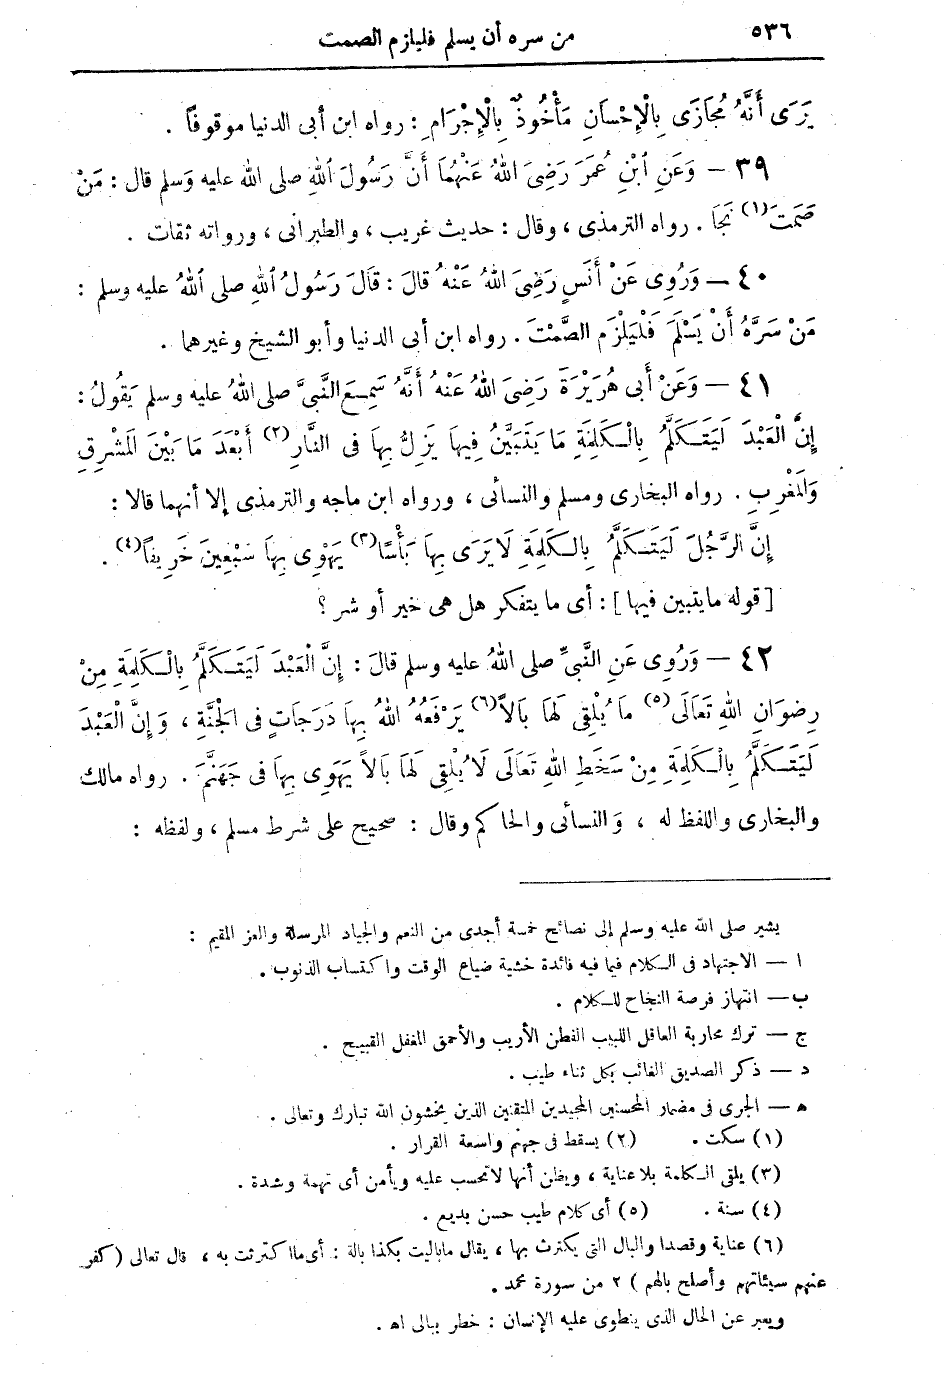 ٥٣٦
من سره أن يسلم فليلزم الصمت
يَرَى أَنَّهُ مُجَازًى بِالْإِحْسَانِ مَأْخُوذٌ بِالْإِجْرَامِ : رواه ابن أبى الدنيا موقوفاً .
٣٩ — وَعَنِ ابْنِ عُمَرَ رَضِىَ اللهُ عَنْهُمَا أَنَّ رَسُولَ اللهِ صلى الله عليه وَسلم قال : مَنْ
صَمَتَ (١) نَجَا . رواه الترمذى ، وقال : حديث غريب ، والطبرانى ، ورواته ثقات .
٤٠ — وَرُوِى عَنْ أَنَسٍ رَضِىَ اللهُ عَنْهُ قالَ : قَالَ رَسُولُ اللهِ صلى اللهُ عليه وسلم :
مَنْ سَرَّهُ أَنْ يَسْلَمَ فَلْيَلْزَمِ الصَّمْتَ . رواه ابن أبى الدنيا وأبو الشيخ وغيرهما .
٤١ — وَعَنْ أَبى هُرَيْرَةَ رَضِىَ اللهُ عَنْهُ أَنَّهُ سَمِعَ النَّبىَّ صلى اللهُ عليه وسلم يَقُولُ :
إِنَّ الْعَبْدَ لَيَتَكَلَّمُ بِالْكَلِمَةِ مَا يَتَبَيَّنُ فِيهَا يَزِلُّ بِهَا فى النَّارِ (٢) أَبْعَدَ مَا بَيْنَ الْمَشْرِقِ
وَالْمَغْرِبِ . رواه البخارى ومسلم والنسائى ، ورواه ابن ماجه والترمذى إلا أنهما قالا :
إِنَّ الرَّجُلَ لَيَتَكَلَّمُ بِالْكَلِمَةِ لَا يَرَى بِهَا بَأْسًا (٣) يَهْوِى بِهَا سَبْعِينَ خَرِيفاً (٤) .
[ قوله ما يتبين فيها ] : أى ما يتفكر هل هى خير أو شر ؟
٤٢ — وَرُوِى عَنِ النَّبىِّ صلى اللهُ عليه وسلم قالَ : إِنَّ الْعَبْدَ لَيَتَكَلَّمُ بِالْكَلِمَةِ مِنْ
رِضْوَانِ اللهِ تَعَالَى (٥) مَا يُلْقِى لَهَا بَالاً (٦) يَرْفَعُهُ اللهُ بِهَا دَرَجَاتٍ فى الْجَنَّةِ ، وَإِنَّ الْعَبْدَ
لَيَتَكَلَّمُ بِالْكَلِمَةِ مِنْ سَخَطِ اللهِ تَعَالَى لَا يُلْقِى لَهَا بَالاً يَهْوِى بِهَا فى جَهَنَّمَ . رواه مالك
والبخارى واللفظ له ، وَالنسائى والحاكم وقال : صحيح على شرط مسلم ، ولفظه :
يشير صلى الله عليه وسلم إلى نصائح خمسة أجدى من النعم والجياد المرسلة والعز المقيم :
ا — الاجتهاد فى الكلام فيما فيه فائدة خشية ضياع الوقت واكتساب الذنوب .
ب — انتهاز فرصة النجاح للكلام .
ج — ترك محاربة العاقل اللبيب الفطن الأريب والأحمق المغفل القبيح .
د — ذكر الصديق الغائب بكل ثناء طيب .
ه — الجرى فى مضمار المحسنين المجيدين المتقنين الذين يخشون الله تبارك وتعالى .
(١) سكت . (٢) يسقط فى جهنم واسعة القرار .
(٣) يلقى الكلمة بلا عناية ، ويظن أنها لا تحسب عليه ويأمن أى تهمة وشدة .
(٤) سنة . (٥) أى كلام طيب حسن بديع .
(٦) عناية وقصدا والبال التى يكترث بها ، يقال ما باليت بكذا بالة : أى ما اكترثت به ، قال تعالى (كفر
عنهم سيئاتهم وأصلح بالهم ) ٢ من سورة محمد .
ويعبر عن الحال الذى ينطوى عليه الإنسان : خطر ببالى اه .